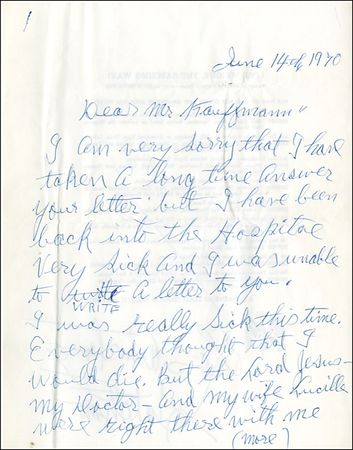 June 14th, 1970
Dear Mr Kauffmann"
I am very sorry that I have
taken A "long time answer
your letter" but I have been
back into the Hospital
Very Sick And I was unable
to write A letter to you.
WRITE
I was really Sick this time.
Everybody thought that I
would die. But the Lord Jesus–
my Doctor– And my wife Lucille
were right there with me
(more)